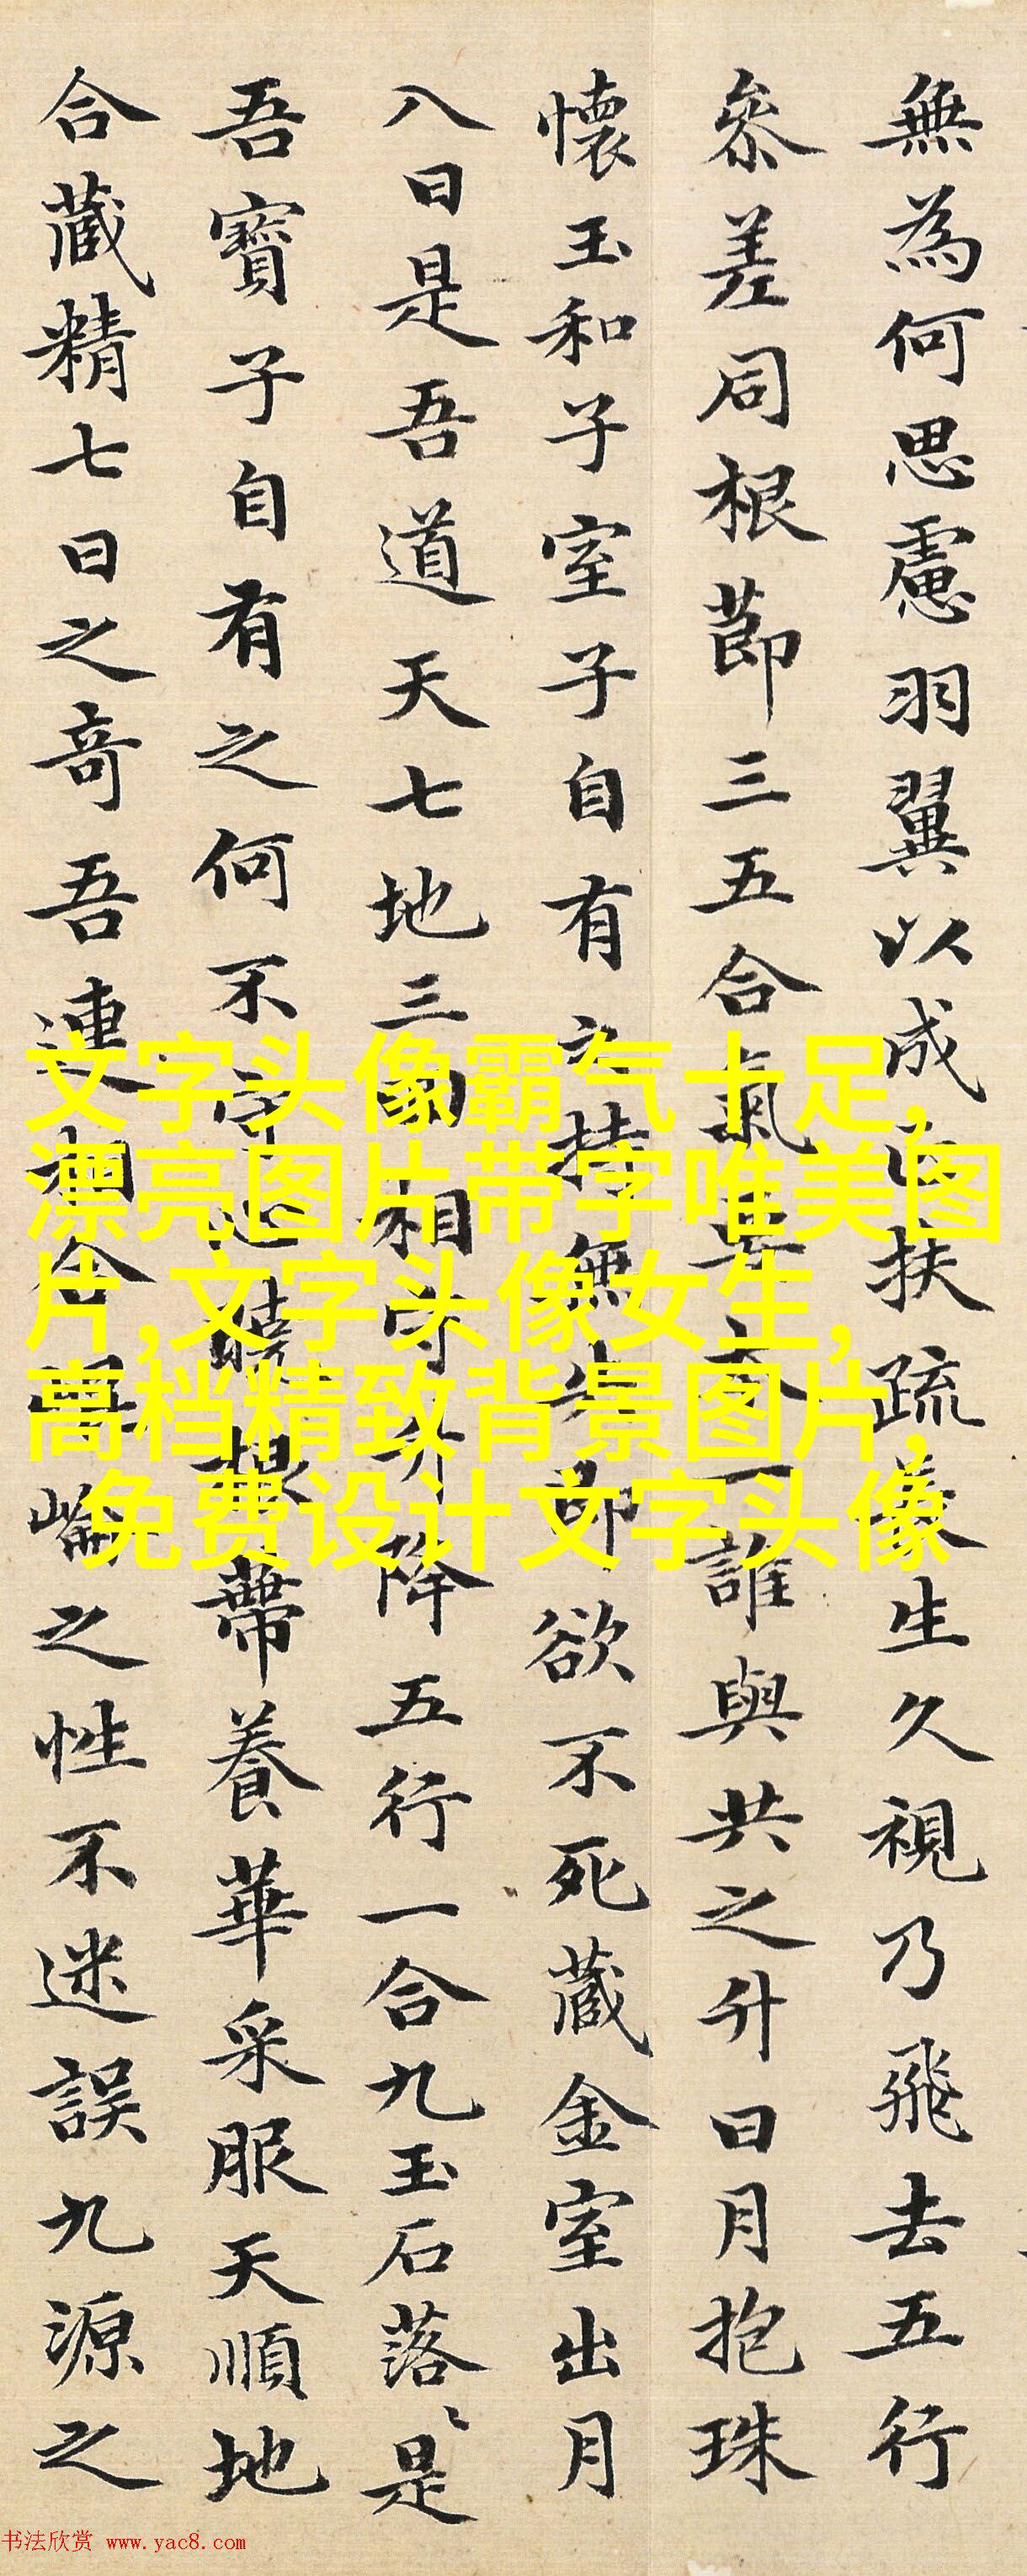 無為何思慮羽翼以成扶疏生久視乃飛去五行
參差同根節三五合氣一誰與共之升日月抱珠
懷玉和子室子自有之持無失即欲不死藏金室出月
入日是吾道天七地三相守升降五行一合九玉石落〻是
吾寶子自有之何不守根蔕養華采服天順地
合藏精七日之奇吾連相合崘之性不迷誤九源之
文字头像霸气十足,
漂亮图片带字唯美图
片,文字头像女生,
高档精致背景图片,
免费设计文字头像
书法欣赏 www.yac8.com